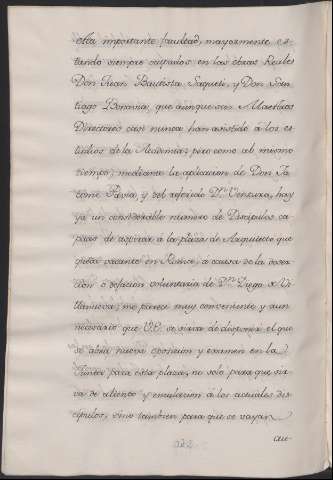 esta importante facultad, mayormente es-
tando siempre ocupados en las obras Reales
Don Juan Bautista Saqueti, y Don San-
tiago Bonavia, que aunque son Maestros
Directores casi nunca han asistido à los es-
tudios de la Academia; pero como al mismo
tiempo, mediante la aplicacion de Don Ja-
come Pavia, y del referido Dn. Ventura, hay
ya un considerable numero de Discipulos ca-
paces de aspirar à la plaza de Arquitecto que
queda vacante en Roma, à causa de la
ò dejacion voluntaria de Dn. Diego de Vi-
llanueva; me parece muy conveniente y aun
necesario que VE. se sirva de disponer el que
se abra nueva oposicion y examen en la
Junta para esta plaza, no solo para que sir-
va de aliento y emulacion à los actuales dis-
cipulos, sino tambien para que se vayan